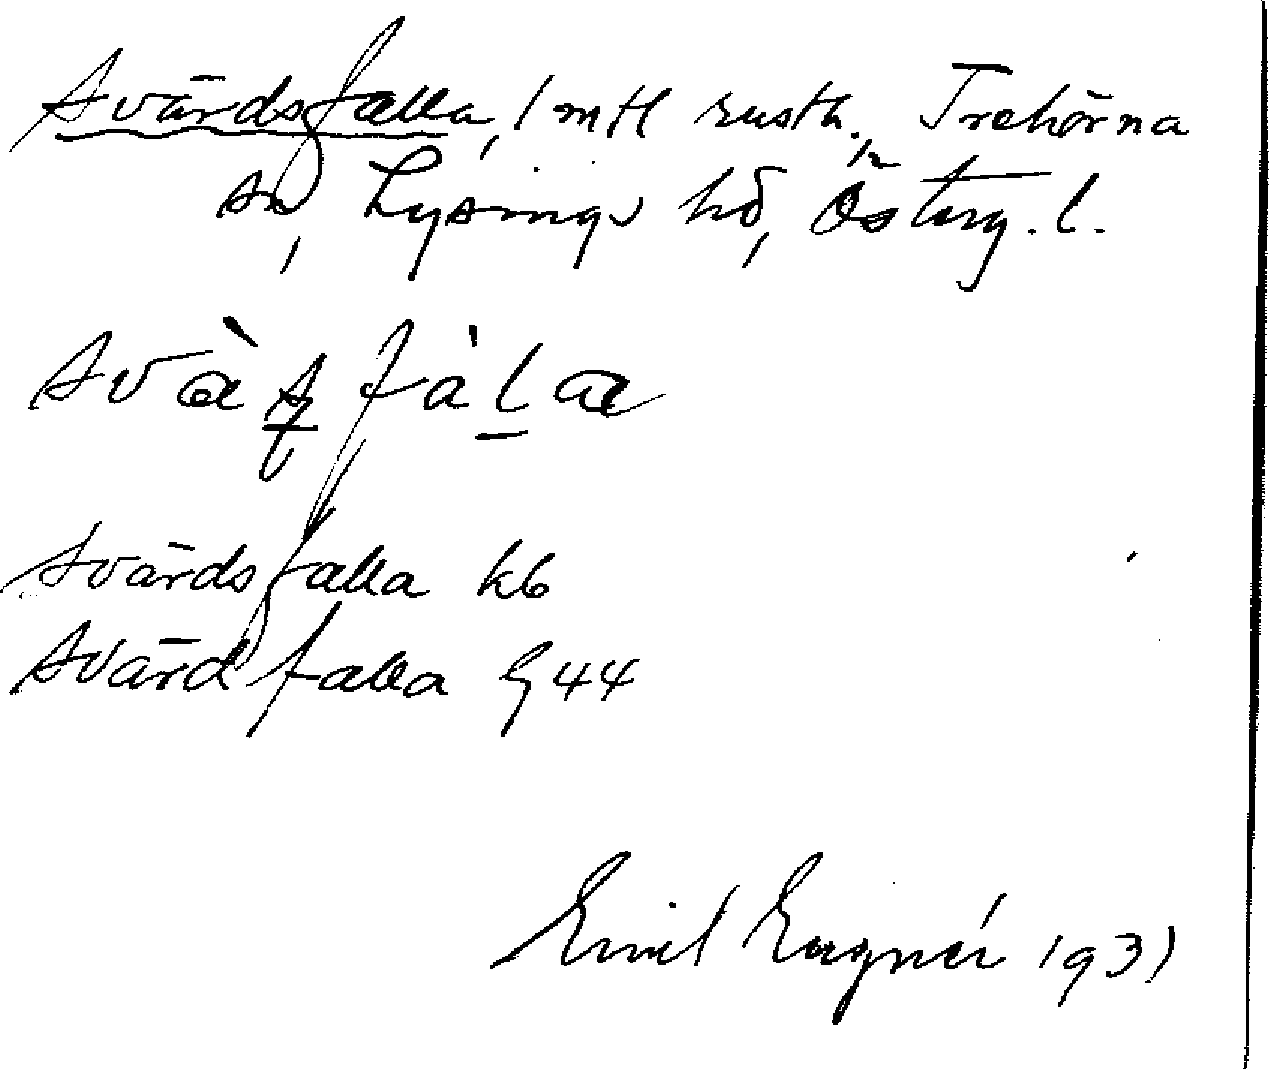 Svärdsfalla, 1 mtl rusth., Trehörna
sn, Lysings hd, Österg. l.
svä̀s̱ fàḻa
Svärdsfalla kb
Svärdfalla G 44
Emil Eugnér 1931